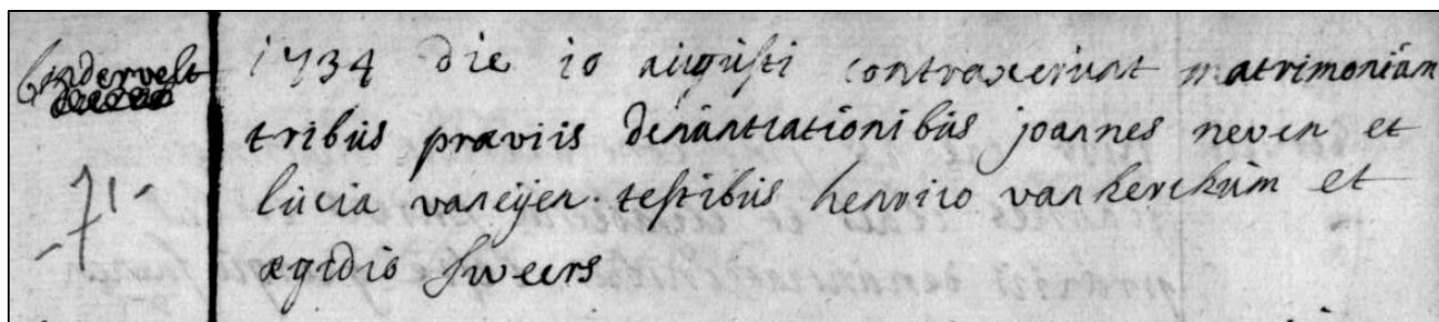 Lindervelt
1734 die 10 augusti contraxerunt matrimoniũm
tribus præviis denuntiationibus joannes neven et
lucia vaneijen testibus henrico van kerckum et
ægidio sweers